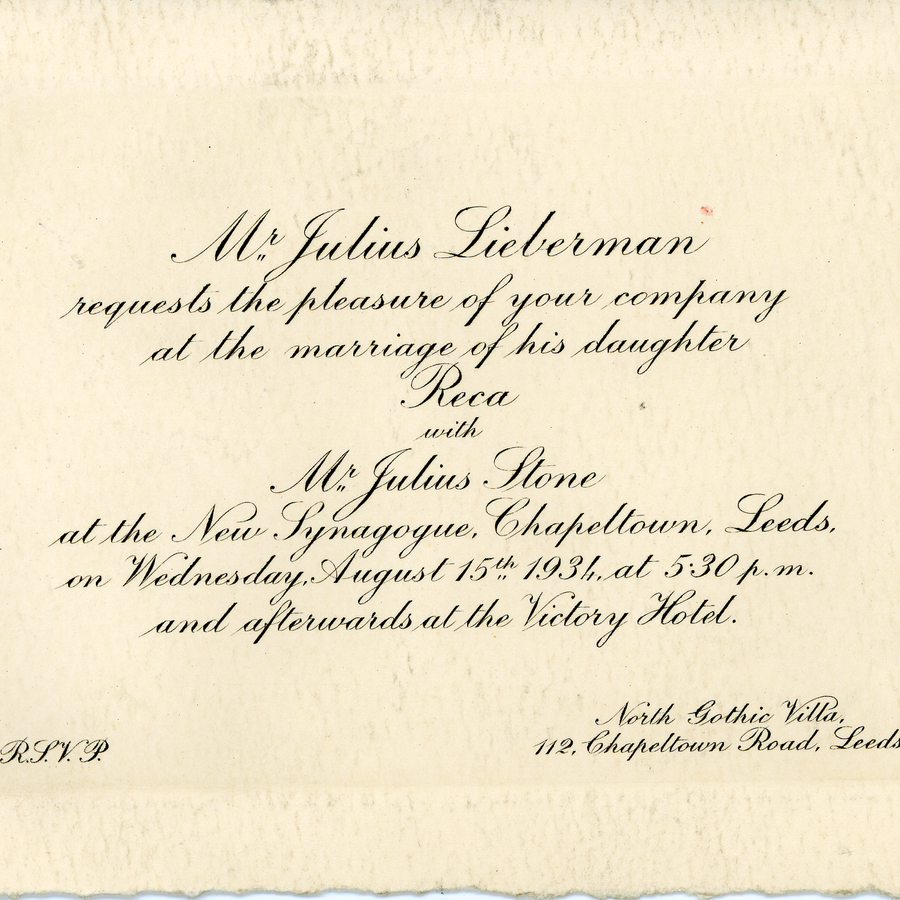 Mr. Julius Lieberman
requests the pleasure of your company
at the marriage of his daughter
Reca
with
Mr. Julius Stone
at the New Synagogue, Chapeltown, Leeds,
on Wednesday, August 15th 1934, at 5·30 p.m.
and afterwards at the Victory Hotel.
North Gothic Villa,
112, Chapeltown Road, Leeds
R.S.V.P.